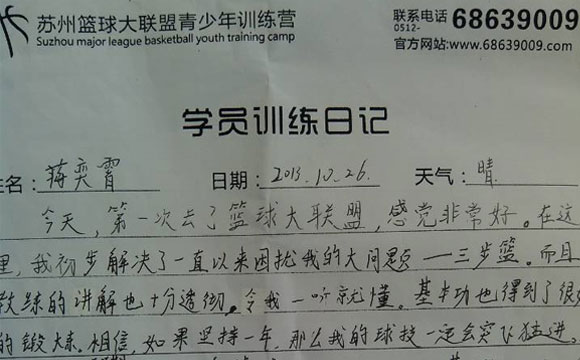 苏州篮球大联盟青少年训练营
Suzhou major league basketball youth training camp
联系电话 0512- 68639009
官方网站:www.68639009.com
学员训练日记
名: 蒋奕霄 日期: 2013.10.26. 天气: 晴
今天,第一次去了篮球大联盟,感觉非常好。在这
里,我初步解决了一直以来困扰我的大问题——三步篮。而且
教练的讲解也十分透彻。令我一听就懂。基本功也得到了很
的锻炼。相信,如果坚持一年,那么我的球技一定会突飞猛进。